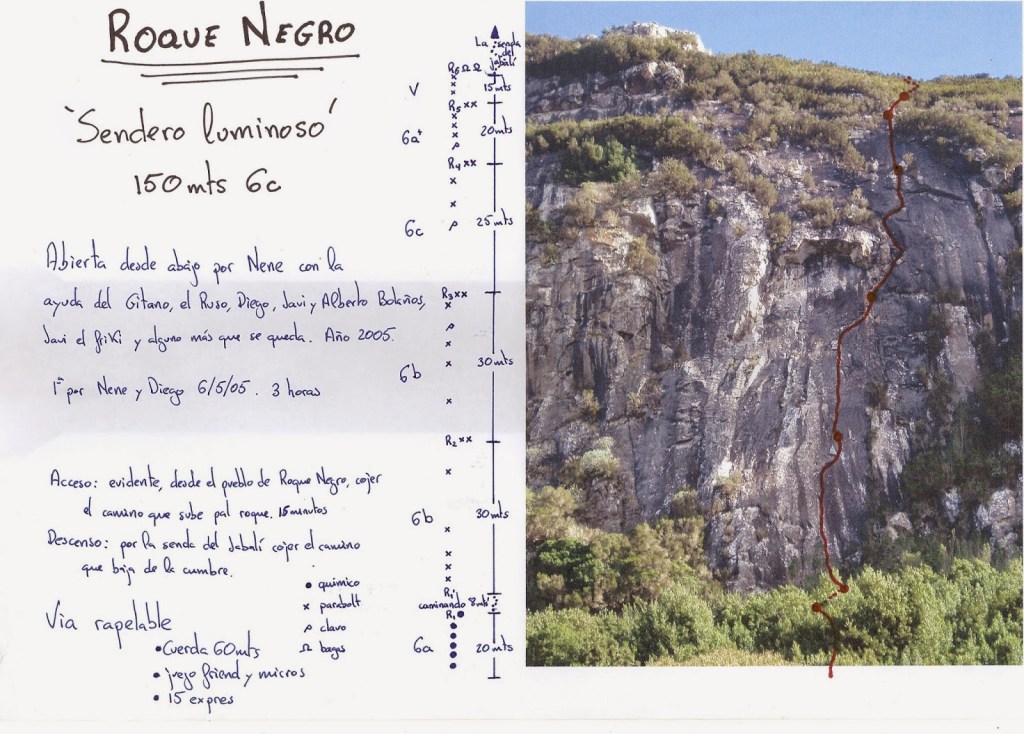 ROQUE NEGRO
'Sendero luminoso'
150 mts 6c
Abierta desde abajo por Nene con la
ayuda del Gitano, el Ruso, Diego, Javi y Alberto Bolaños,
Javi el friKi y alguno más que se queda. Año 2005.
1ª por Nene y Diego 6/5/05. 3 horas
Acceso: evidente, desde el pueblo de Roque Negro, cojer
el camino que sube pal roque. 15 minutos
Descenso: por la senda del Jabalí cojer el camino
que baja de la cumbre.
• químico
x parabolt
clavo
Ω bagas
Via rapelable
• Cuerda 60 mts
• juego friend y micros
• 15 expres
La senda
del
jabalí
R6 Ω Ω
15 mts
V
R5 xx
20 mts
6a+
R4 xx
25 mts
6c
R3 xx
30 mts
6b
R2 xx
30 mts
6b
R1'
caminando 8 mts
R1
6a
20 mts